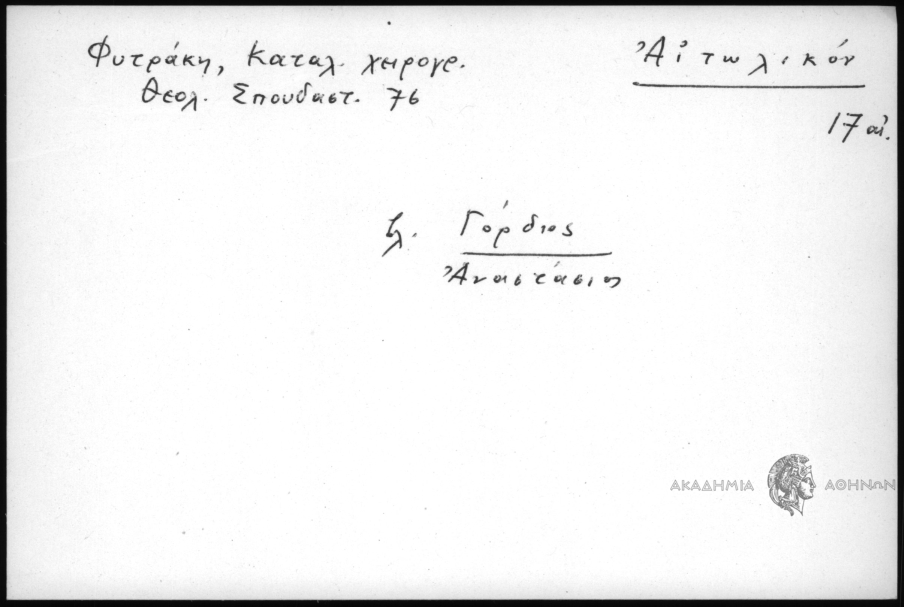 Φυτράκη, Καταλ. χειρογρ.
Θεολ. Σπουδαστ. 76
Ἀἰτωλικόν
17 αἰ.
βλ. Γόρδιος
Ἀναστάσιος
ΑΚΑΔΗΜΙΑ ΑΘΗΝΩΝ